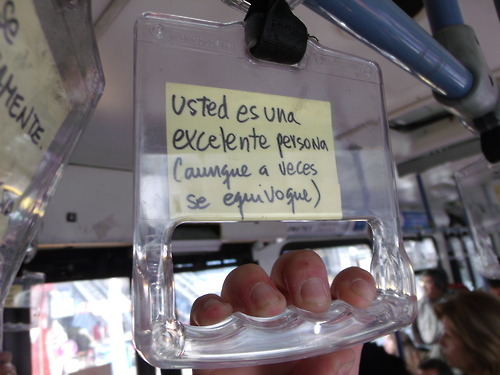 se
AMENTE.
usted es una
excelente persona
(aunque a veces
se equivoque)